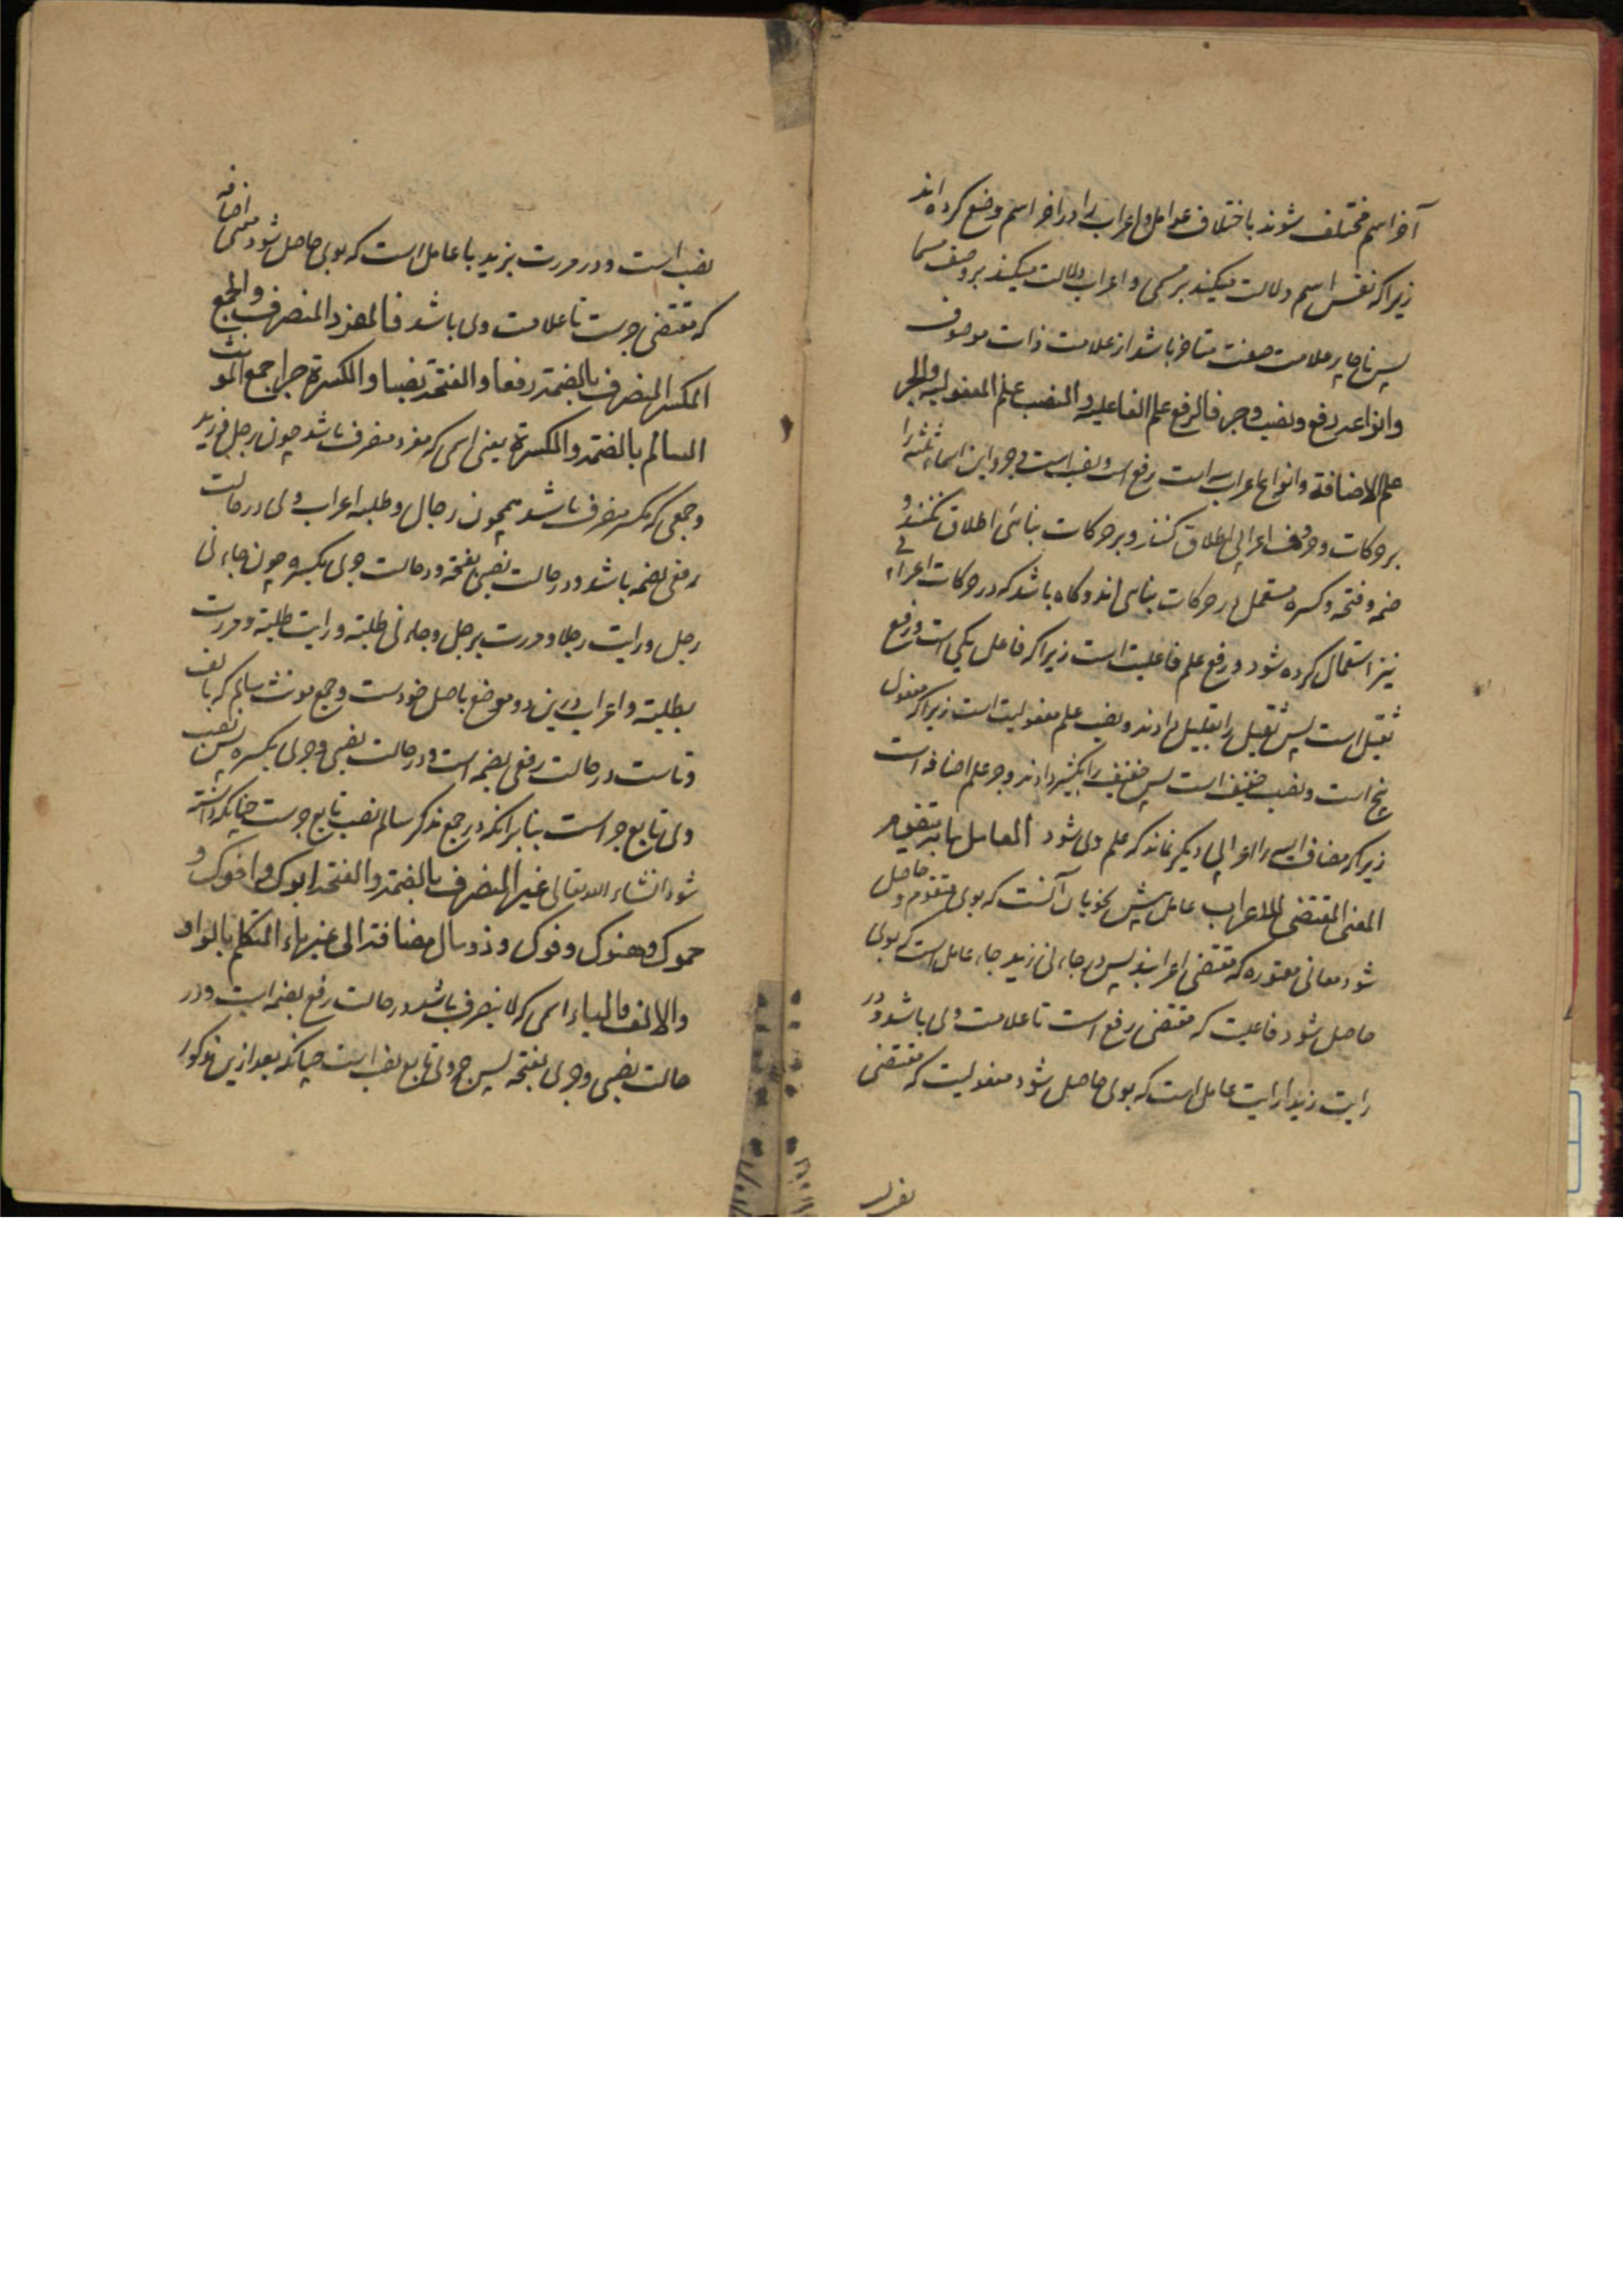 آخر اسم مختلف شوند باختلاف عوامل و اعراب را در اخر اسم وضع کرده اند
زیرا که نفس اسم دلالت میکند بر مسمی و اعراب دلالت میکند بر وصف مسما
پس ناچار علامت صفت متاخر باشد از علامت ذات موصوف
وانواعه رفع ونصب وجر فالرفع علم الفاعلیه والنصب علم المفعولیه والجر
علم الاضافة وانواع اعراب سه است رفع است و نصب است و جر و این اسماء ثلثه را
بر حرکات و حروف اعرابی اطلاق کنند و بر حرکات بنائی اطلاق نکنند و
ضمه و فتحه و کسره مستعمل در حرکات بنایی اند و کاه باشد که در حرکات اعرابی
نیز استعمال کرده شود و رفع علم فاعلیت است زیرا که فاعل یکی است و رفع
ثقیل است پس ثقیل را بقلیل دادند و نصب علم مفعولیت است زیرا که مفعول
پنج است و نصب خفیف است پس خفیف را بکثیر دادند و جر علم اضافه است
زیرا که مضاف الیه را اعرابی دیکر نماند که علم وی شود العامل ما به یتقوم
المعنی المقتضی للاعراب عامل پیش نحویان آنست که بوی متقوم و حاصل
شود معانی معتوره که مقتضی اعرابند پس در جاءنی زید جاء عامل است که بوی
حاصل شود فاعلیت که مقتضی رفع است تا علامت وی باشد و در
رایت زیدا رایت عامل است که بوی حاصل شود مفعولیت که مقتضی
نصب است و در مررت بزید با عامل است که بوی حاصل شود معنی اضافه
که مقتضی جرست تا علامت وی باشد فالمفرد المنصرف والجمع
المکسر المنصرف بالضمة رفعا والفتحة نصبا والکسرة جرا جمع المونث
السالم بالضمة والکسرة یعنی اسمی که مفرد منصرف باشد چون رجل و زید
و جمعی که مکسر منصرف باشد همچون رجال و طلبه اعراب وی در حالت
رفعی بضمه باشد و در حالت نصبی بفتحه و در حالت جری بکسره چون جاءنی
رجل ورایت رجلا ومررت برجل وجاءنی طلبة ورایت طلبة ومررت
بطلبة و اعراب درین دو موضع باصل خودست و جمع مونث سالم که بالف
و تاست در حالت رفعی بضمه است و در حالت نصبی و جری بکسره پس نصب
وی تابع جر است بنا بر انکه در جمع مذکر سالم نصب تابع جرست چنانکه دانسته
شود انشاء الله تعالی غیر المنصرف بالضمة والفتحة ابوک واخوک و
حموک وهنوک وفوک وذو مال مضافة الی غیر یاء المتکلم بالواو
والالف والیاء اسمی که لا ینصرف باشد در حالت رفع بضمه است و در
حالت نصبی و جری بفتحه پس جر وی تابع نصب است چنانکه بعد ازین مذکور